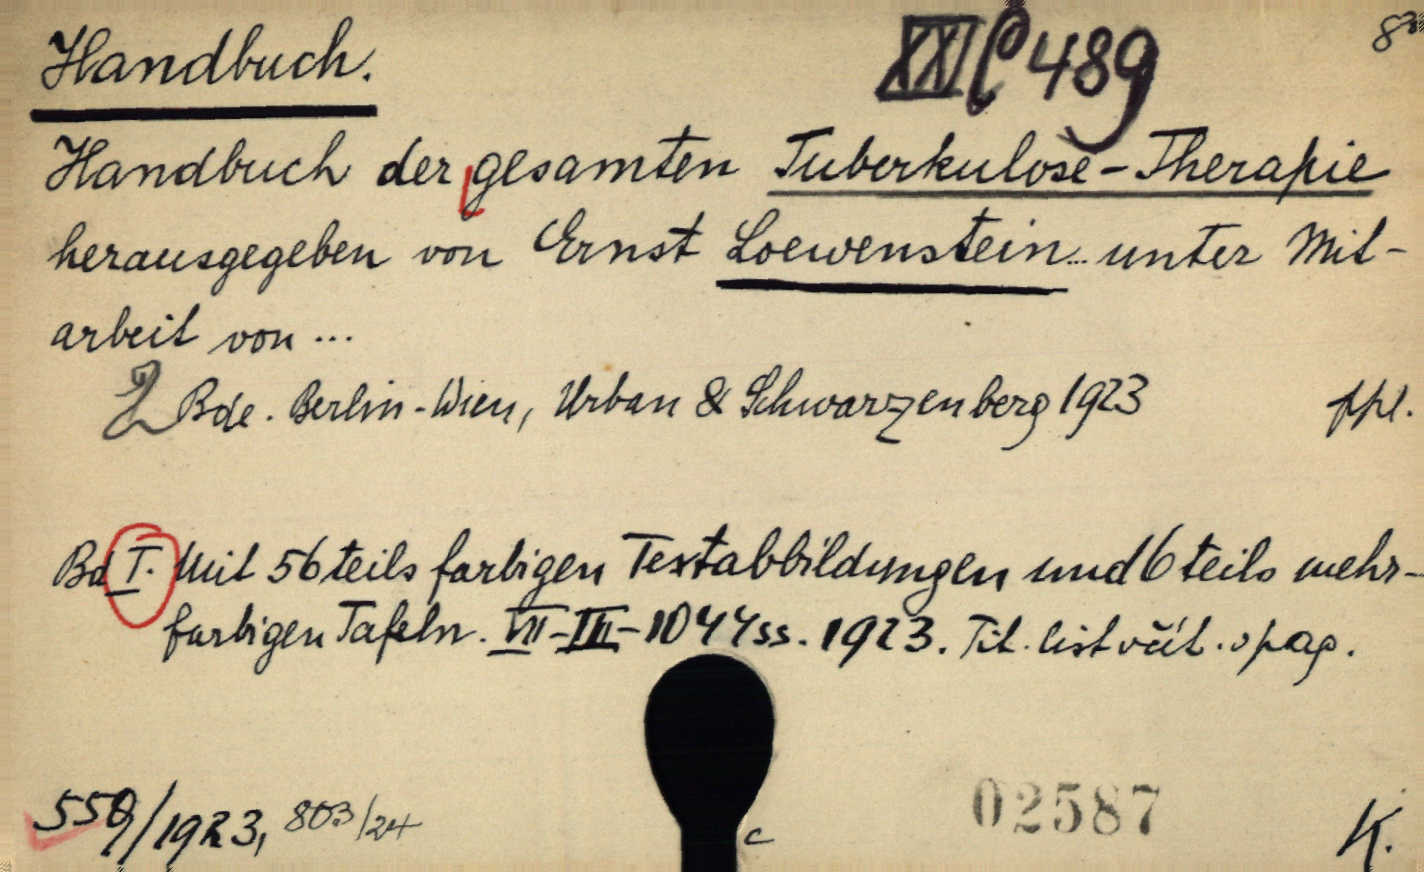 Handbuch.
XXI C 489
Handbuch der gesamten Tuberkulose-Therapie
herausgegeben von Ernst Loewenstein... unter Mit-
arbeit von ...
2 Bde. Berlin-Wien, Urban & Schwarzenberg 1923 ppl.
Bd I. Mit 56 teils farbigen Textabbildungen und 6 teils mehr-
farbigen Tafeln. VII-III-1044 ss. 1923. Tit. list včít. v pag.
/1923, 803/24
02587
c
K.